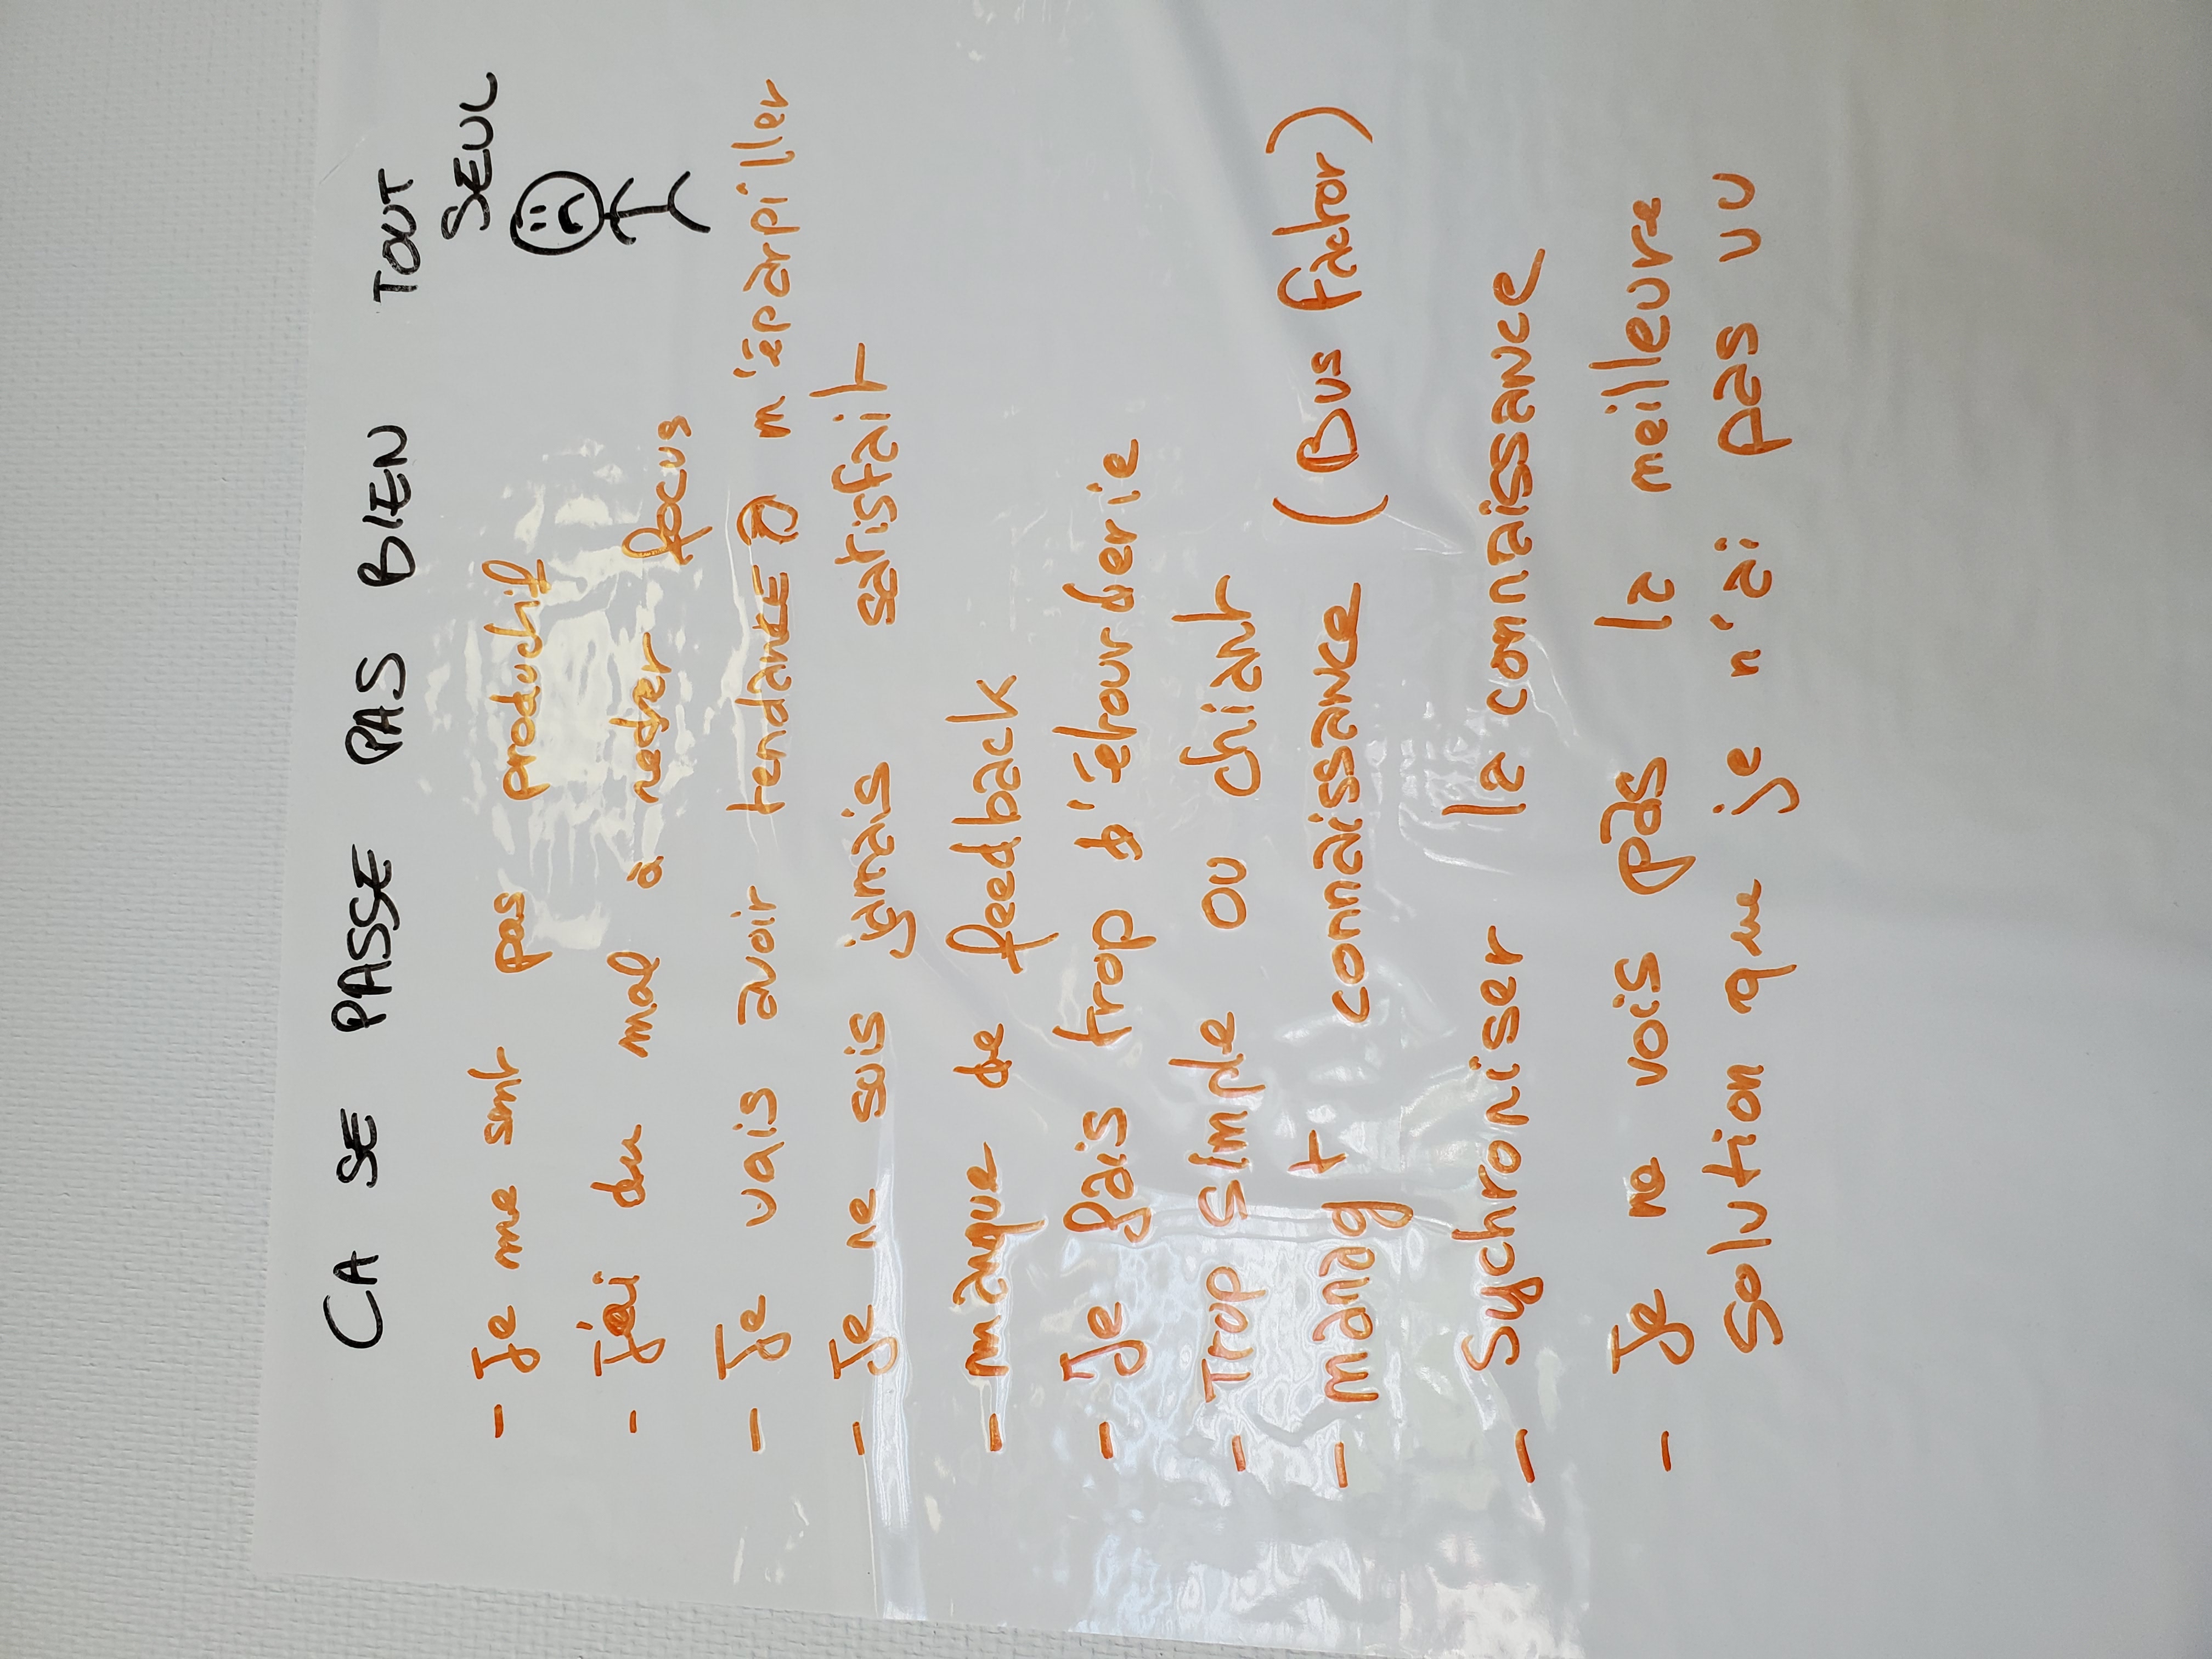 CA SE PASSE PAS BIEN TOUT
SEUL
- Je me sent pas productif
- J'ai du mal à rester focus
- Je vais avoir tendance à m'éparpiller
- Je ne suis jamais satisfait
- manque de feedback
- Je fais trop d'étourderie
- Trop simple ou chiant
- manag t connaissance (Bus factor)
- Sychroniser la connaissance
- Je ne vois pas la meilleure
solution que je n'ai pas vu